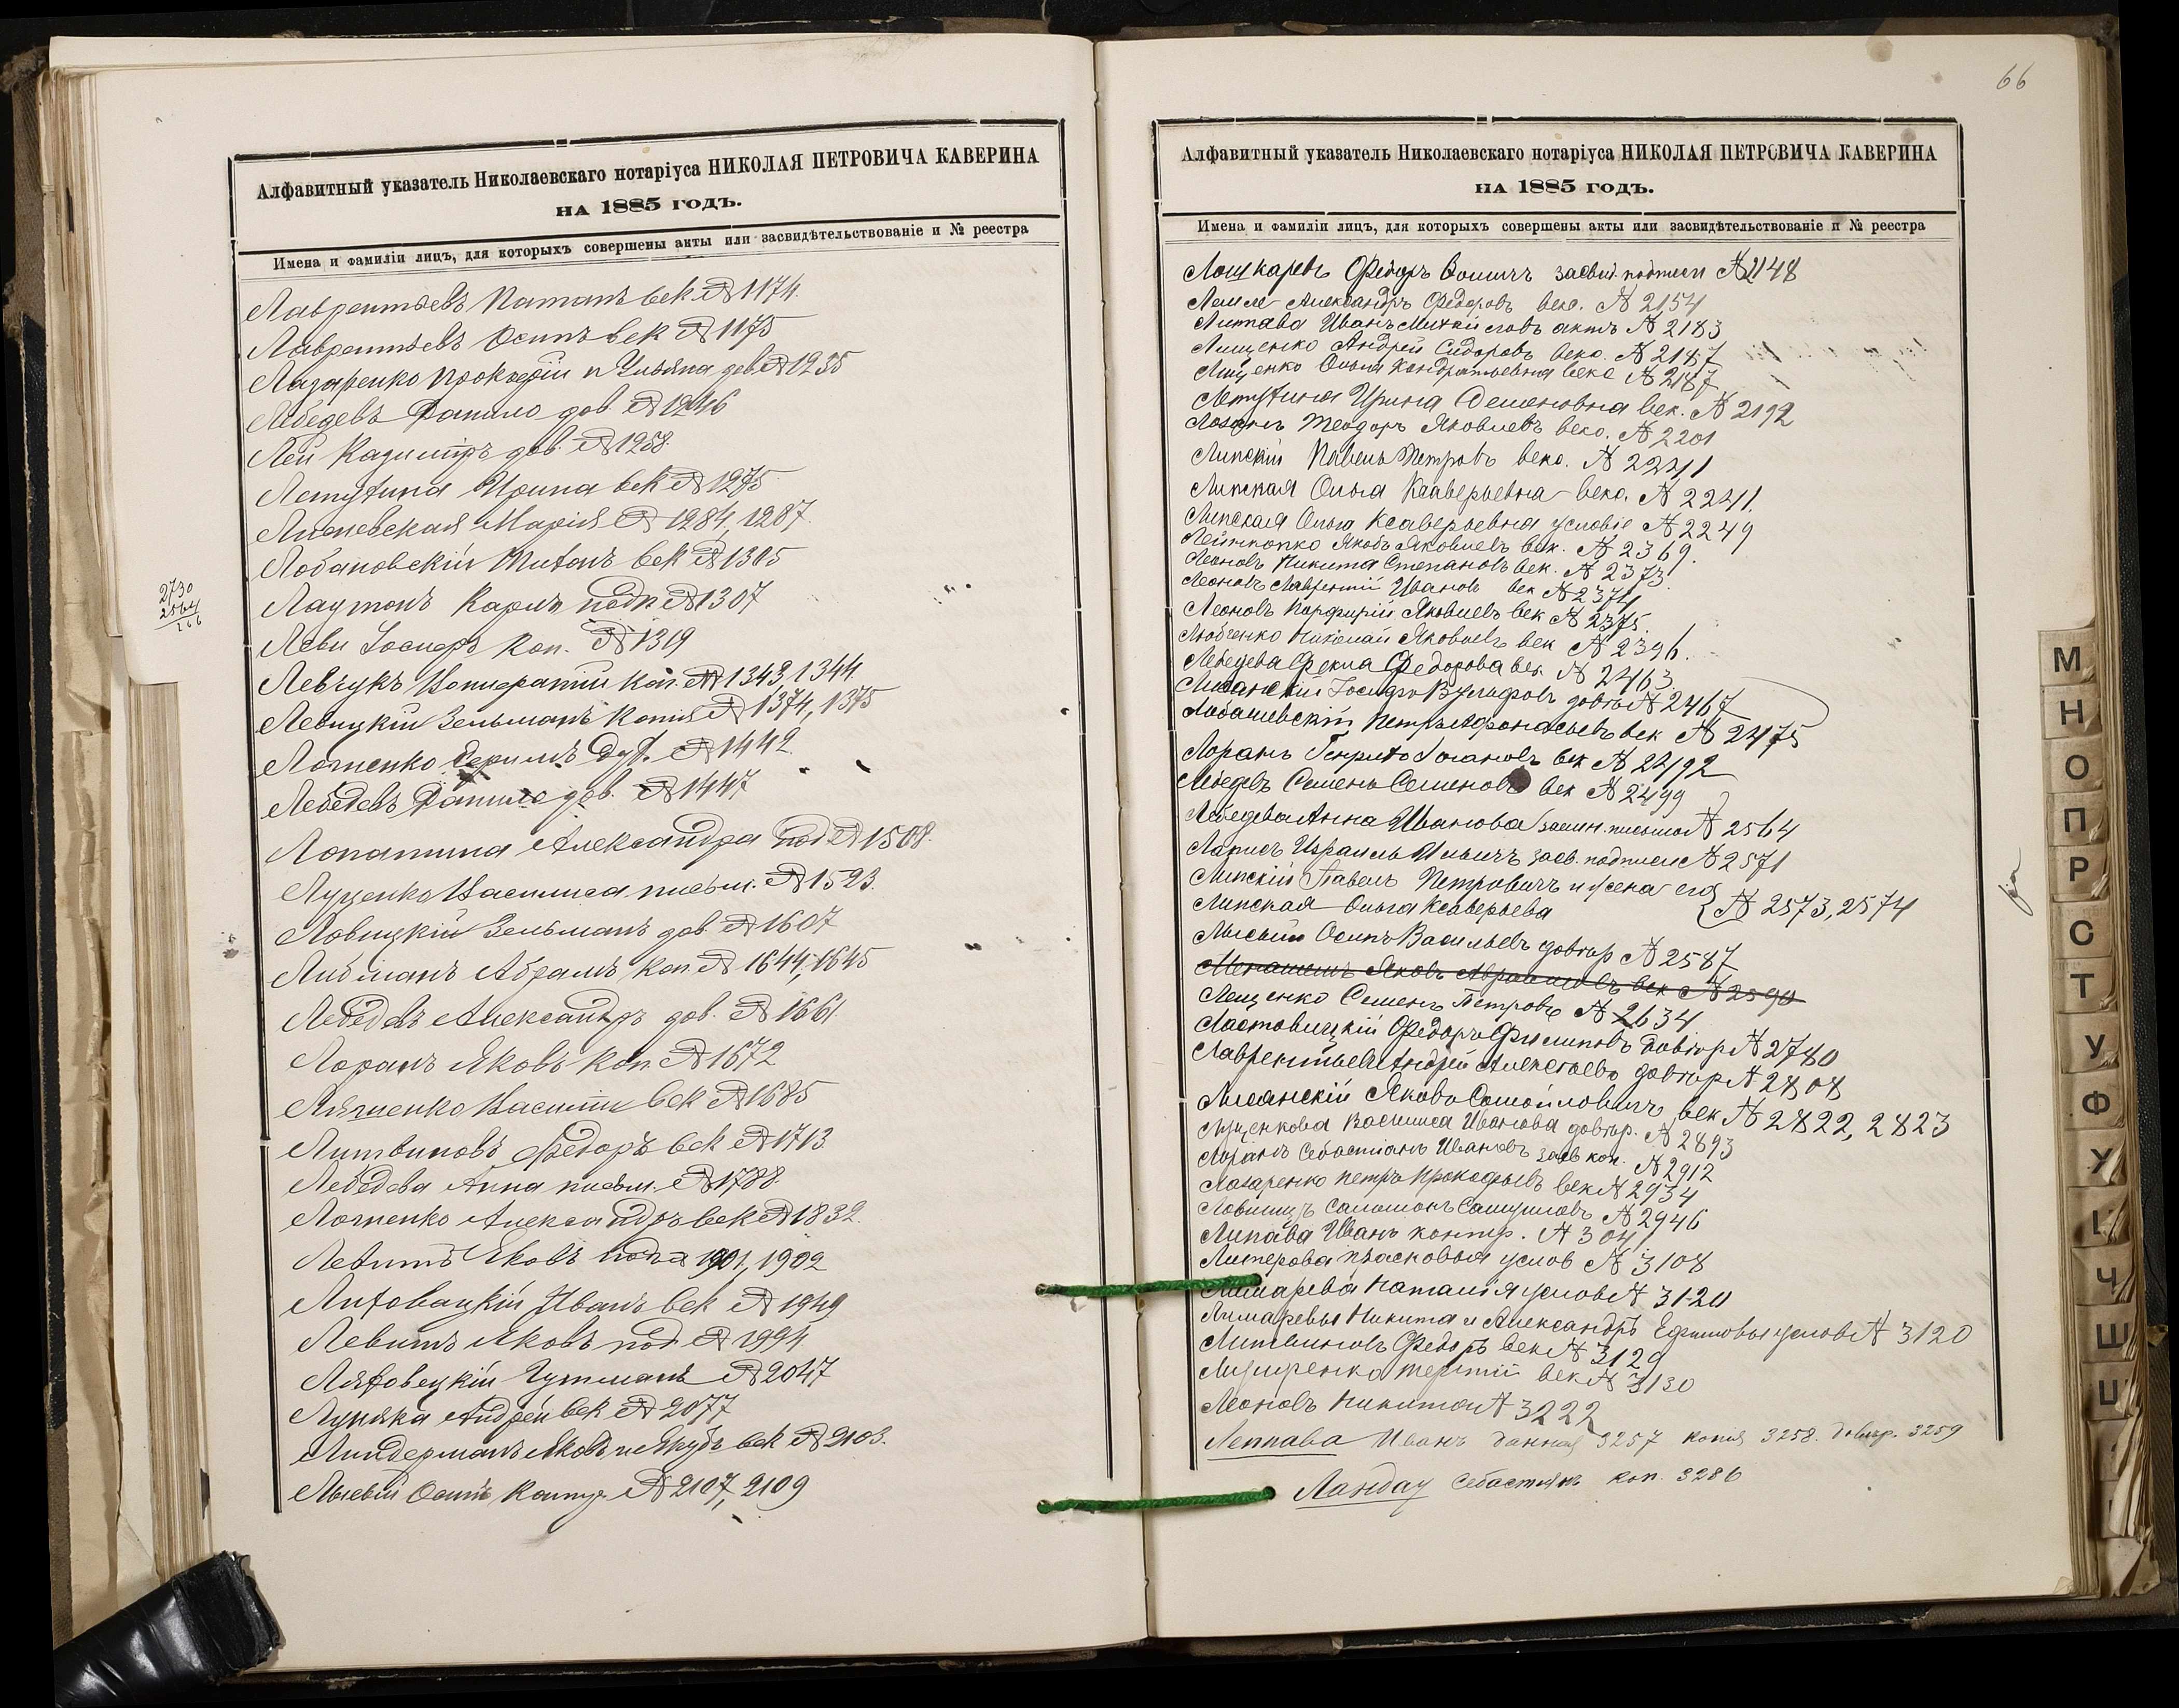 Алфавитный указатель Николаевскаго нотаріуса НИКОЛАЯ ПЕТРОВИЧА КАВЕРИНА
НА 1885 ГОДЪ.
Имена и фамиліи лицъ, для которыхъ совершены акты или засвидѣтельствованіе и № реестра
Лаврентьевъ Потапъ век № 1174.
Лаврентьевъ Осипъ век № 1175
Лазаренко Прокофій и Ульяна дов № 1235
Лебедевъ Данило дов № 1246
Лей Казиміръ дов. № 1258.
Летухина Ирина век № 1275
Марія № 1284, 1287.
Лобановскій Титъ век № 1305
Лаутонъ Карлъ подп № 1307
Леви Іосифъ коп. № 1319
Левчукъ коп. № 1343, 1344.
Левицкій Зельманъ копія № 1374, 1375
№ 1442.
Лебедевъ Данило дов. № 1447
Лопатина Александра под № 1508.
Луценко Василиса письм. № 1523.
Ловицкій Зельманъ дов № 1607
Либманъ Абрамъ коп. № 1644, 1645
Лебедевъ Александръ дов. № 1661.
Лоранъ Яковъ коп. № 1672
Василій век № 1685
Литвиновъ Федоръ век № 1713
Лебедева Анна письм. № 1788.
Александръ век № 1832.
Левитъ Яковъ под № 1901, 1902
Иванъ век № 1949
Левитъ Яковъ под № 1994
№ 2047
Андрей век № 2077
Линдерманъ Яковъ и век № 2103.
Лысый Осипъ контр. № 2107, 2109
2730
2564
166
66
Алфавитный указатель Николаевскаго нотаріуса НИКОЛАЯ ПЕТРОВИЧА КАВЕРИНА
НА 1885 ГОДЪ.
Имена и фамиліи лицъ, для которыхъ совершены акты или засвидѣтельствованіе и № реестра
Лошкаревъ Федоръ засвид. подписи № 2148
Александръ Федоровъ века. № 2154
Иванъ актъ № 2183
Лищенко Андрей Сидоровъ века. № 2187
Лищенко Ольга Кондратьевна века № 2187
Летухина Ирина Семеновна век. № 2192
Теодоръ Яковлевъ века. № 2201
Липскій Павелъ Петровъ века. № 2241
Липская Ольга Ксаверьевна века. № 2241.
Липская Ольга Ксаверьевна условіе № 2249
Яковъ Яковлевъ век. № 2369.
Леоновъ Никита Степановъ век. № 2373
Леоновъ Лаврентій Ивановъ век № 2374
Леоновъ Порфирій Яковлевъ век № 2375.
Любченко Николай Яковлевъ век № 2396.
Лебедева Фекла Федорова век № 2463.
Лисанскій Іосифъ Вульфовъ довѣр № 2467
Лобашевскій Петръ Афонасьевъ век № 2475
Лоранъ Генрихъ Іогановъ век № 2492
Лебедевъ Семенъ Семеновъ век № 2499
Лебедева Анна Иванова № 2564
Израиль Ильичъ засв. подписи № 2571
Липскій Павелъ Петровичъ и жена его
Липская Ольга Ксаверьева № 2573, 2574
Лысый Осипъ Васильевъ довѣр № 2587
Яковъ Абрамовъ век № 2590
Лещенко Семенъ Петровъ № 2634
Ластовицкій Федоръ Филиповъ довѣр № 2780
Лаврентьевъ Андрей Алексѣевъ довѣр № 2808
Лисанскій Яковъ Самойловичъ век № 2822, 2823
Луценкова Василиса Иванова довѣр. № 2893
Лоранъ Себастіанъ Ивановъ засв коп. № 2912
Лазаренко Петръ Прокофьевъ век № 2934
Соломонъ № 2946
Липава Иванъ контр. № 3041
Прасковья услов № 3108
Лимарева Наталія услов № 3120
Лимаревы Никита и Александръ Ефимовы услов № 3120
Литвиновъ Федоръ век № 3129
Терентій век № 3130
Леоновъ Никита № 3222
Леппава Иванъ данная 3257 копія 3258. довѣр. 3259
Ландау Себастьянъ коп. 3286
М
Н
О
П
Р
С
Т
У
Ф
Ч
Ш